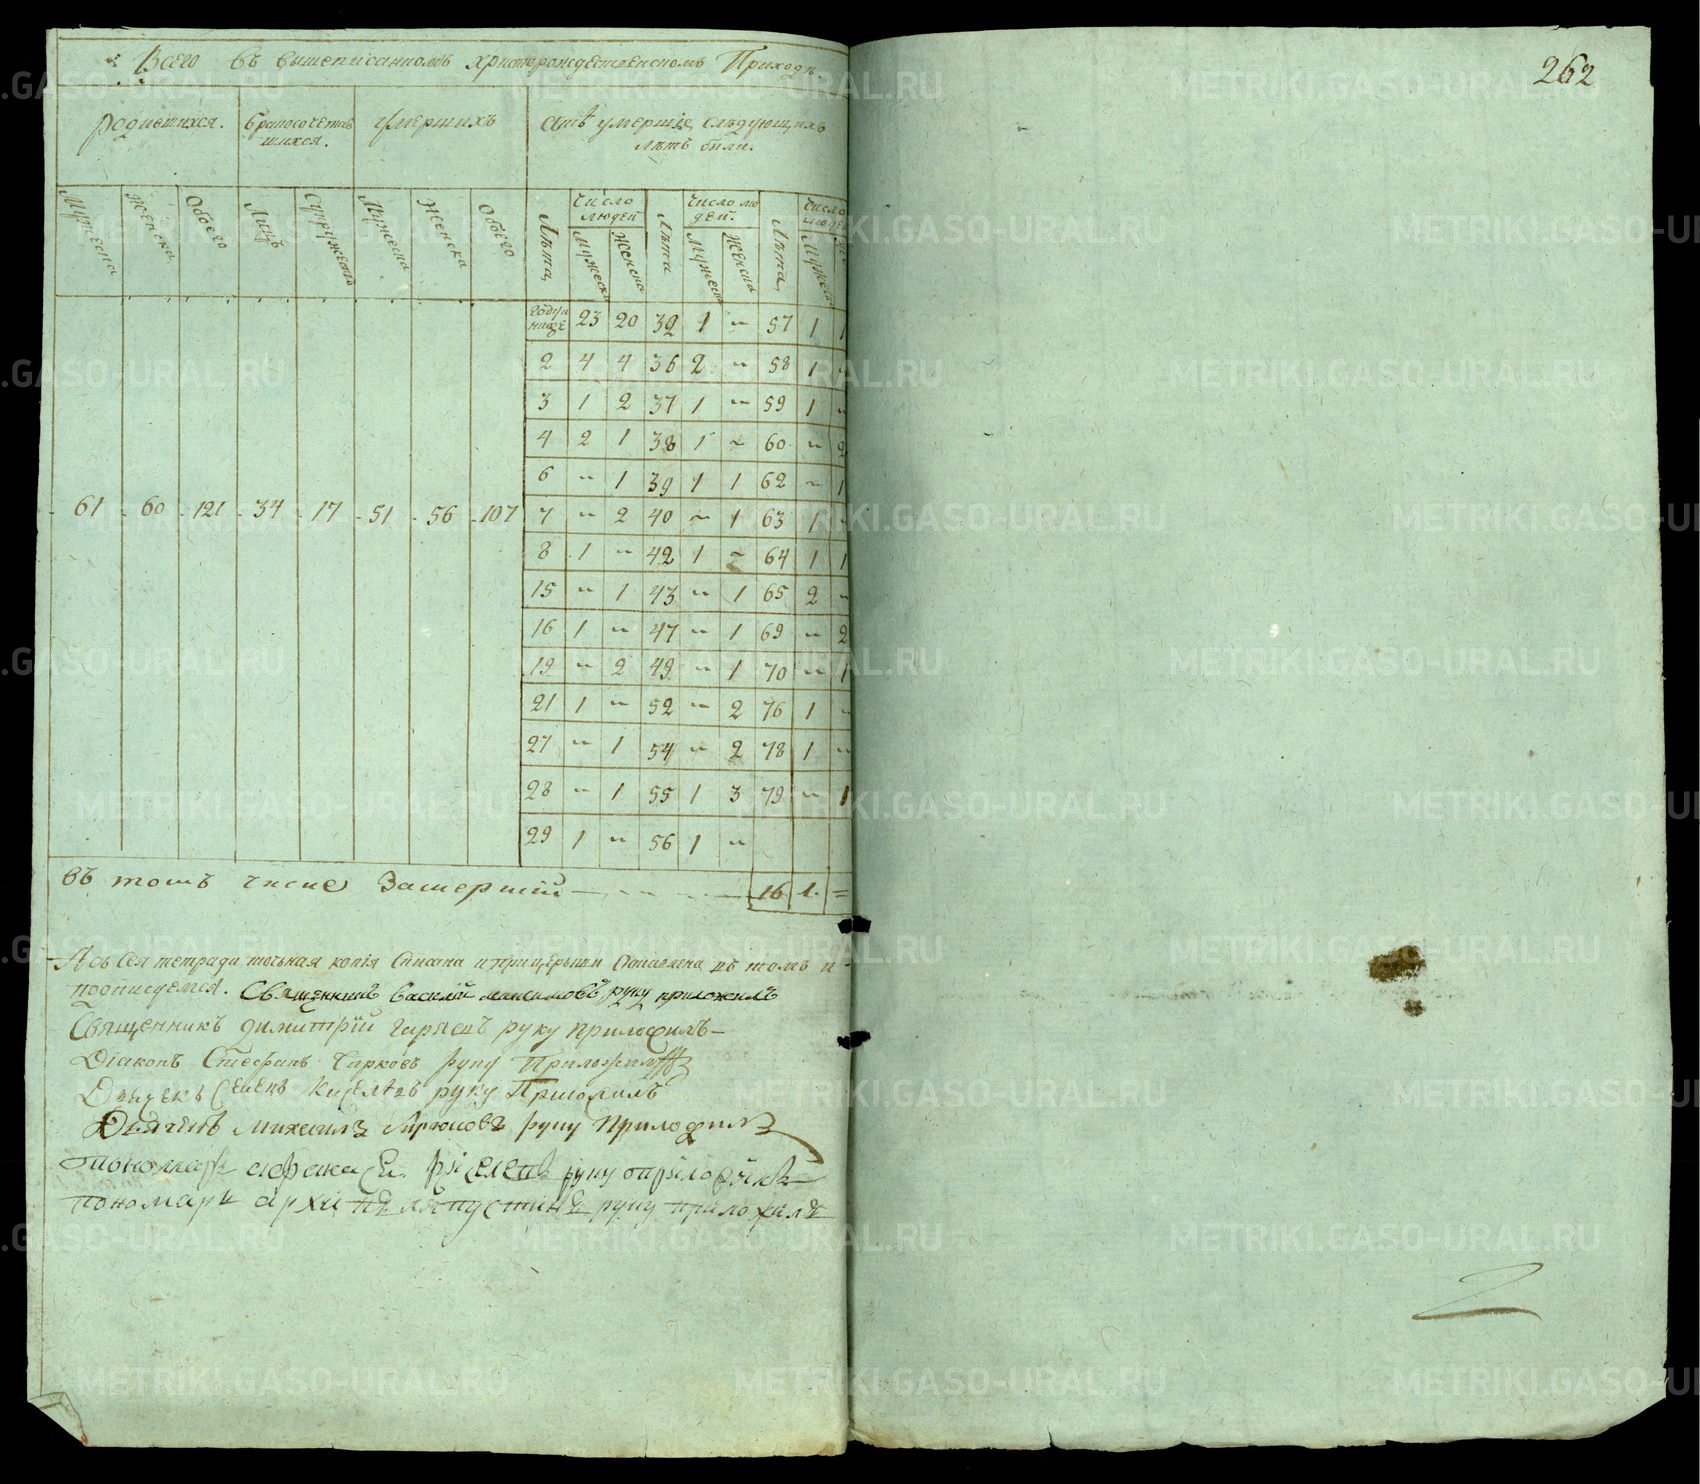 262
Всего въ вышеписанномъ христорождественскомъ Приходѣ.
родившихся. бракосочетав умершихъ А тѣ умершіе, слѣдующихъ
шихся. лѣтъ были.
Мужеска Женска Обоего Лицъ Супружествъ Мужеска Женска Обоего Лѣта, число людей Лѣта число лю Лѣта, число
дей.
Мужеска Женска Мужеска Женска Мужеска
году и 23 20 32 1 ~ 57 1 1
ниже
2 4 4 36 2 ~ 58 1 ~
3 1 2 37 1 ~ 59 1 ~
4 2 1 38 1 ~ 60 ~ 2
6 ~ 1 39 1 1 62 ~ 1
61 60 121 34 17 51 56 107 7 ~ 2 40 ~ 1 63 1 ~
8 1 ~ 42 1 ~ 64 1 1
15 ~ 1 43 ~ 1 65 2 ~
16 1 ~ 47 ~ 1 69 ~ 2
19 ~ 2 49 ~ 1 70 ~ 1
21 1 ~ 52 ~ 2 76 1 ~
27 ~ 1 54 ~ 2 78 1 ~
28 ~ 1 55 1 3 79 ~ 1
29 1 ~ 56 1 ~
въ томъ числе 16 1. =
А съ сей тетради точная копія списана и при церькви оставлена въ томъ и
подписуемся. Священникъ Василій Максимовъ руку приложилъ
Священникъ Димитрій руку приложилъ
Діаконъ Стефанъ Чирковъ руку Приложилъ
Дьячекъ Семенъ Киселевъ руку Приложилъ
Дьячекъ Михаилъ руку Приложилъ
пономарь руку приложилъ
пономарь архипъ руку приложилъ